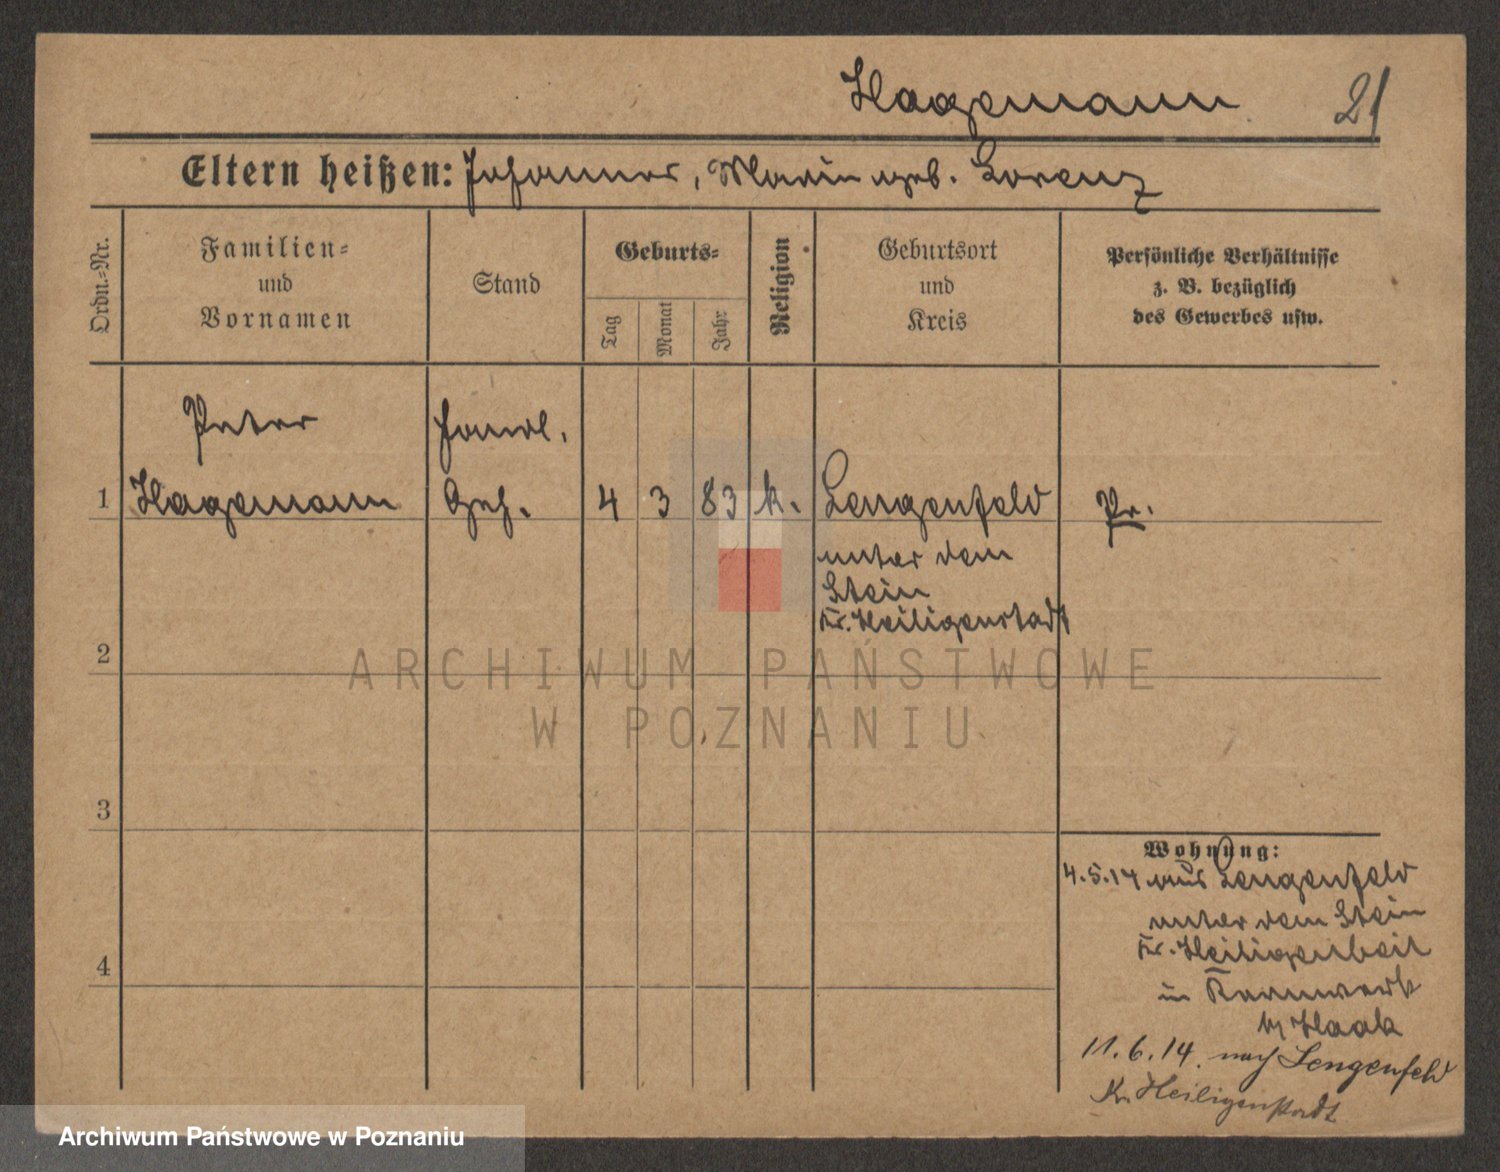 Hagemann 21
Eltern heißen: Johannes, Maria geb. Lorenz
Ordn.-Nr.
Familien-
und
Vornamen
Stand
Geburts-
Tag
Monat
Jahr
Religion
Geburtsort
und
Kreis
Persönliche Verhältnisse
z. B. bezüglich
des Gewerbes usw.
Peter
Handl.
1 Hagemann Geh. 4 3 83 k. Lengenfeld Pr.
unter dem
Stein
Kr. Heiligenstadt
2
ARCHIWUM PAŃSTWOWE
W POZNANIU
3
Wohnung:
4.5.14 aus Lengenfeld
unter dem Stein
Kr. Heiligenbeil
4
in
b/ Haak
11.6.14. nach Lengenfeld
Kr. Heiligenstadt
Archiwum Państwowe w Poznaniu